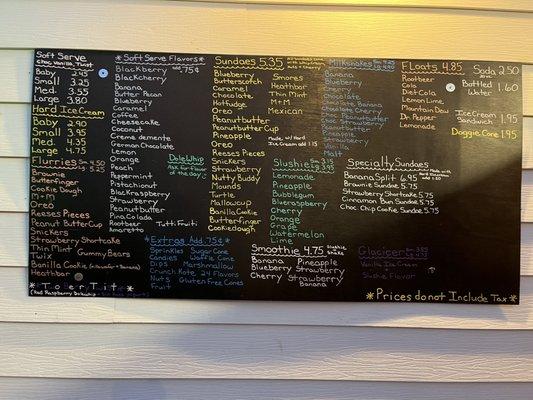 Soft Serve
Choc, Vanilla, Twist
Baby 2.45
Small 3.25
Med. 3.55
Large 3.80
Hard Ice Cream
Baby 2.90
Small 3.95
Med. 4.35
Large 4.75
Flurries Sm 4.50
Lg 5.25
Brownie
Butterfinger
Cookie Dough
M+M
Oreo
Reeses Pieces
Peanut Butter Cup
Snickers
Strawberry Shortcake
Thin Mint Gummy Bears
Twix
Vanilla Cookie
Heathbar
*Soft Serve Flavors*
add .75¢
Blackberry
Blackcherry
Banana
Butter Pecan
Blueberry
Caramel
Coffee
Cheesecake
Coconut
Creme demente
German Chocolate
Lemon
Orange
Peach
Peppermint
Pistachionut
Black Raspberry
Strawberry
Peanutbutter
Pina Colada
Rootbeer
Amaretto
Tutti Fruiti
Dole Whip
Ask for flavor
of the day
*Extras Add .75¢*
Sprinkles Sugar Cone
Candies Waffle Cone
Dips Marshmallow
Crunch Kote 24 Flavors
Nuts Gluten Free Cones
Fruit
Sundaes 5.35
Blueberry
Butterscotch
Caramel
Chocolate
Hot fudge
Oreo
Peanutbutter
Peanutbutter Cup
Pineapple
Oreo
Reeses Pieces
Snickers
Strawberry
Nutty Buddy
Mounds
Turtle
Mallowcup
Vanilla Cookie
Butterfinger
Cookie dough
Smores
Heathbar
Thin Mint
M+M
Mexican
Made w/ Hard
Ice cream add 1.15
Slushies Sm 3.15
Lg 3.95
Lemonade
Pineapple
Bubblegum
Blueraspberry
Cherry
Orange
Grape
Watermelon
Lime
Smoothie 4.75
Banana Pineapple
Blueberry Strawberry
Cherry Strawberry
Banana
Milkshakes
Banana
Blueberry
Cherry
Chocolate
Chocolate Banana
Chocolate Cherry
Choc Strawberry
Peanutbutter
Pineapple
Strawberry
Vanilla
Malt
Specialty Sundaes
Banana Split 6.95
Brownie Sundae 5.75
Strawberry Shortcake 5.75
Cinnamon Bun Sundae 5.75
Choc Chip Cookie Sundae 5.75
Glacier
Vanilla Ice Cream
Slushie Flavor
Floats 4.85
Rootbeer
Cola
Diet Cola
Lemon Lime
Mountain Dew
Dr. Pepper
Lemonade
Soda 2.50
Bottled 1.60
Water
Ice Cream
Sandwich 1.95
Doggie Cone 1.95
*TorTit*
*Prices do not Include Tax*